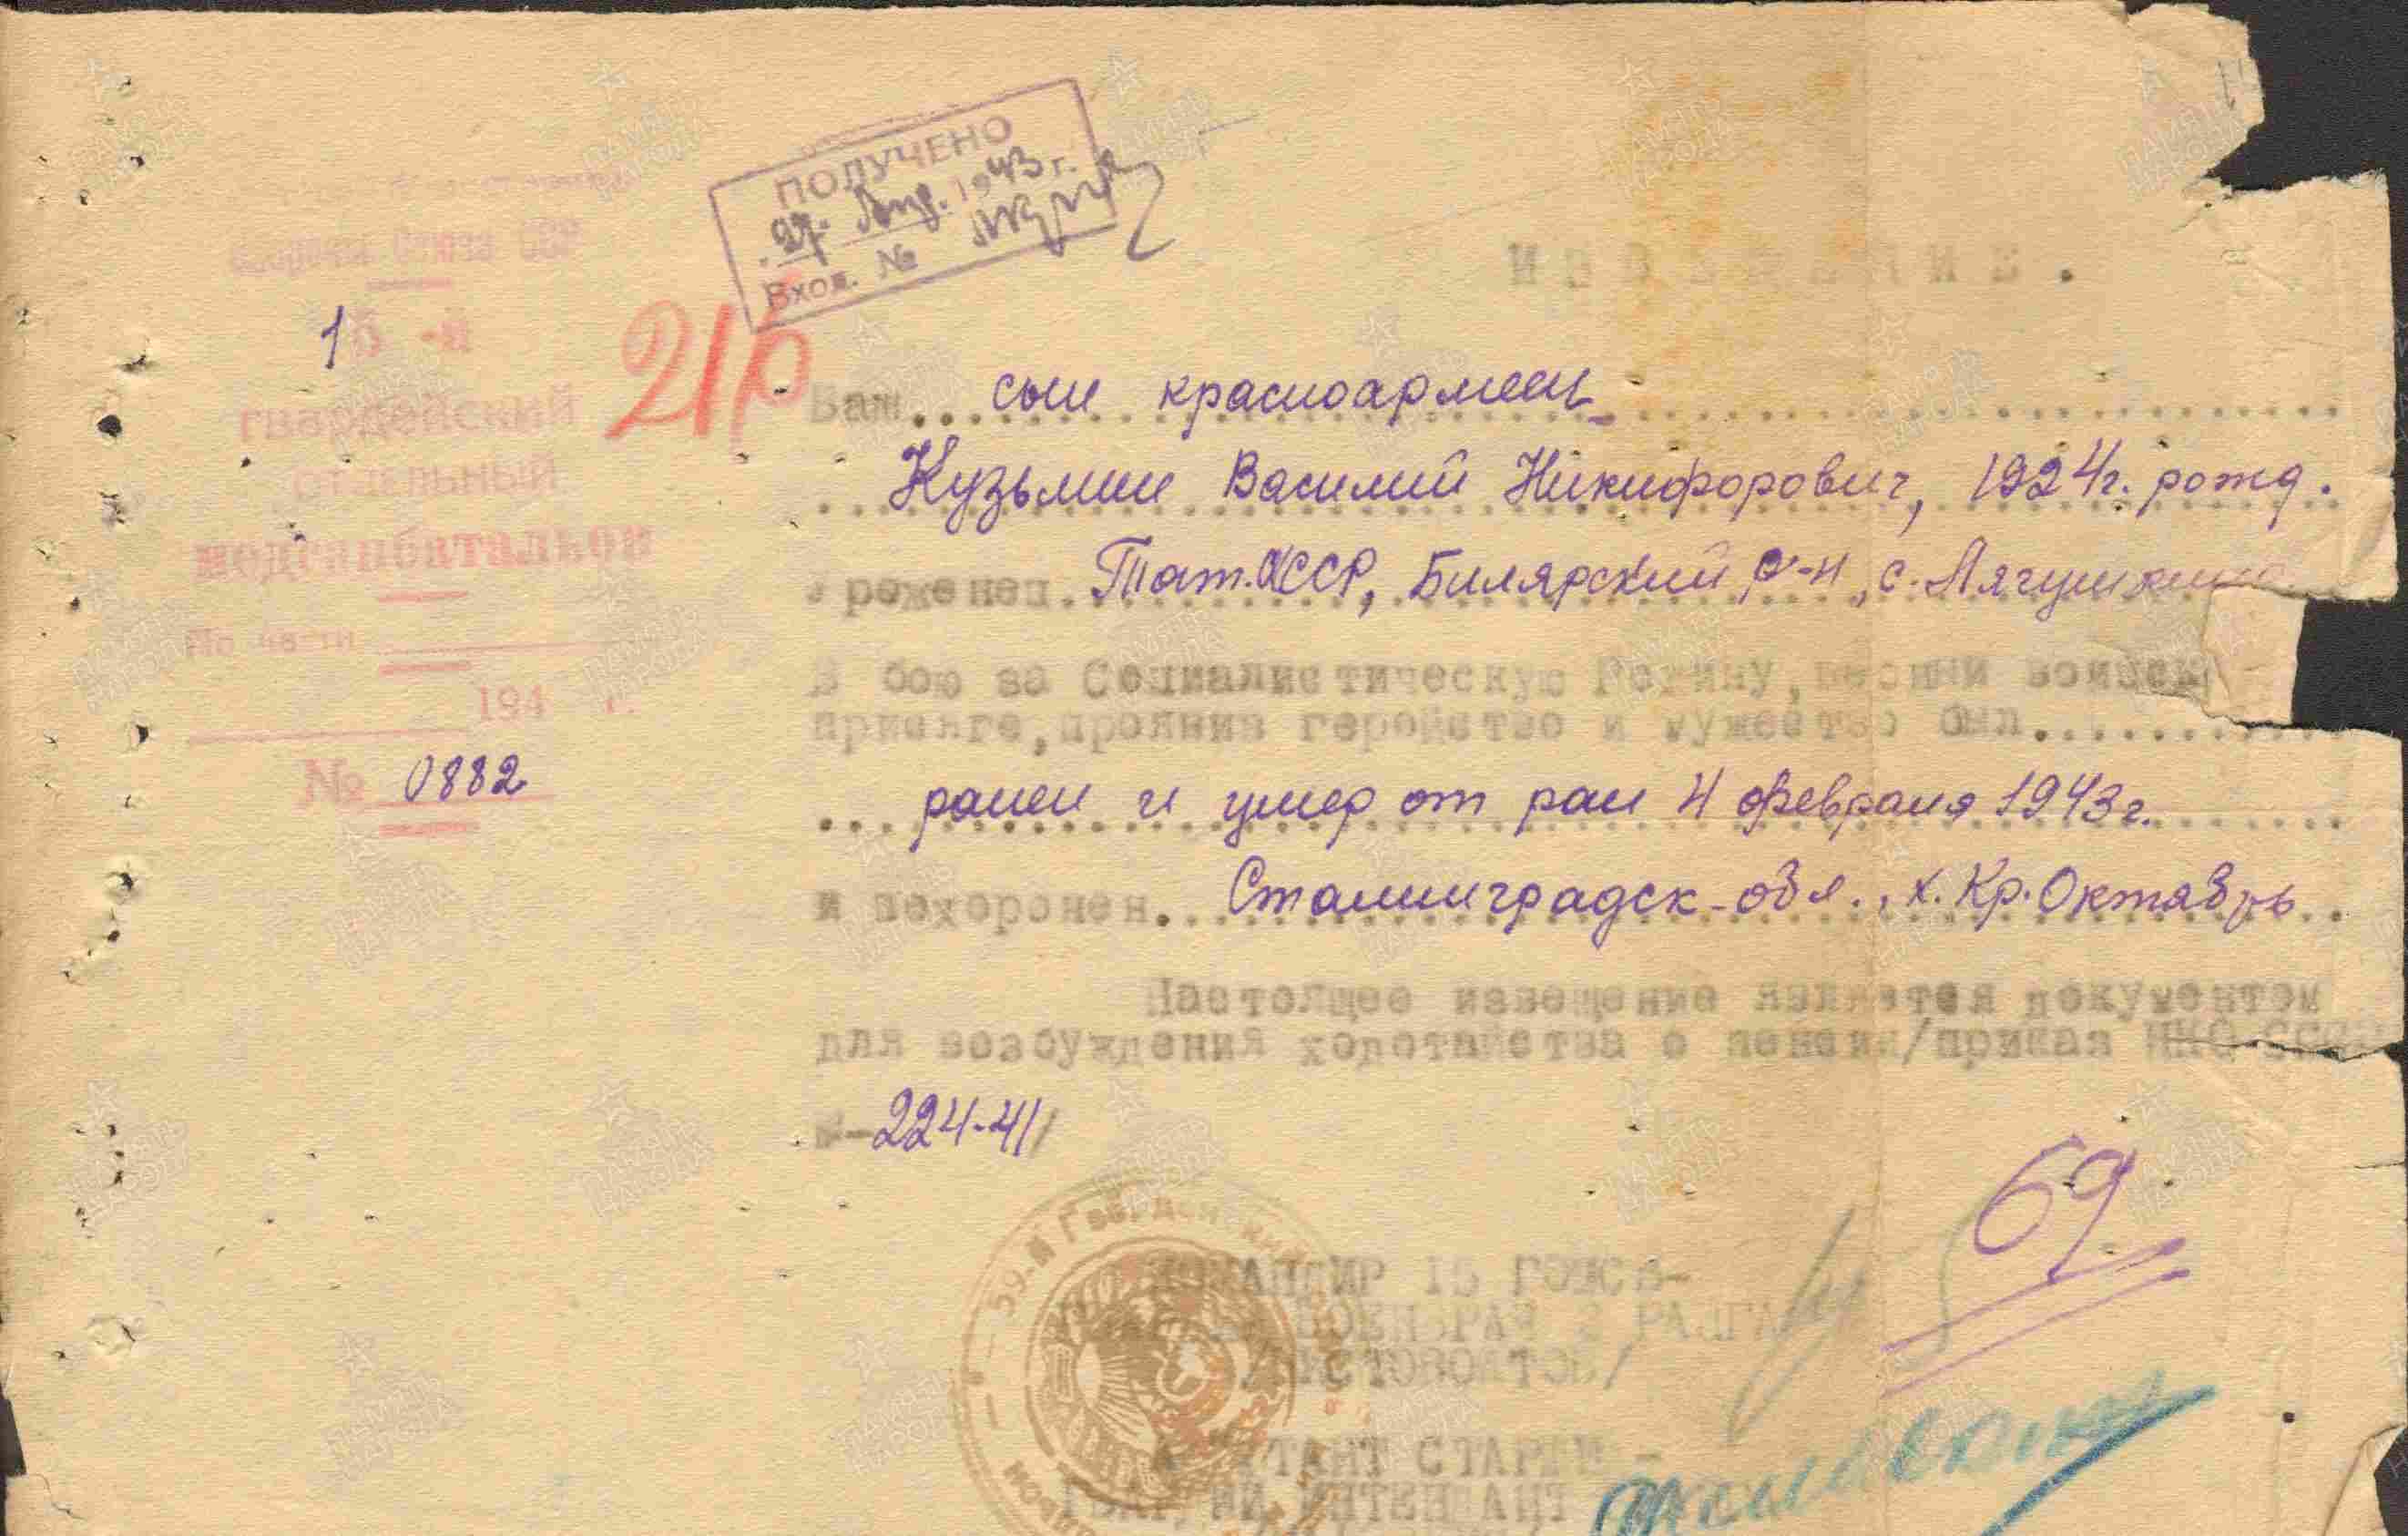 ПОЛУЧЕНО
27. 1943 г.
Вход. №
обороны Союза ССР
15 -й
гвардейский
отдельный
медсанбатальон
По части
194 г.
№ 0882
21
ИЗВЕЩЕНИЕ.
Ваш... сын красноармеец
Кузьмин Василий Никифорович, 1924г. рожд.
Уроженец. Тат.АССР, Билярский р-н, с. Лягушкино
В бою за Социалистическую Родину, верный воинск
присяге, проявив геройство и мужество был..........
... ранен и умер от ран 4 февраля 1943г.
и похоронен. Сталинградск-обл., х. Кр. Октябрь
Настоящее извещение является документом
для возбуждения ходотайства о пенсии/приказ НКО СССР
№-224-41/
69
59-й Гвардейский
КОМАНДИР 15 ГОМСБ-
ВОЕНВРАЧ 2 РАНГА
АДЪЮТАНТ СТАРШИЙ -
ГВАРДИИ ИНТЕНДАНТ